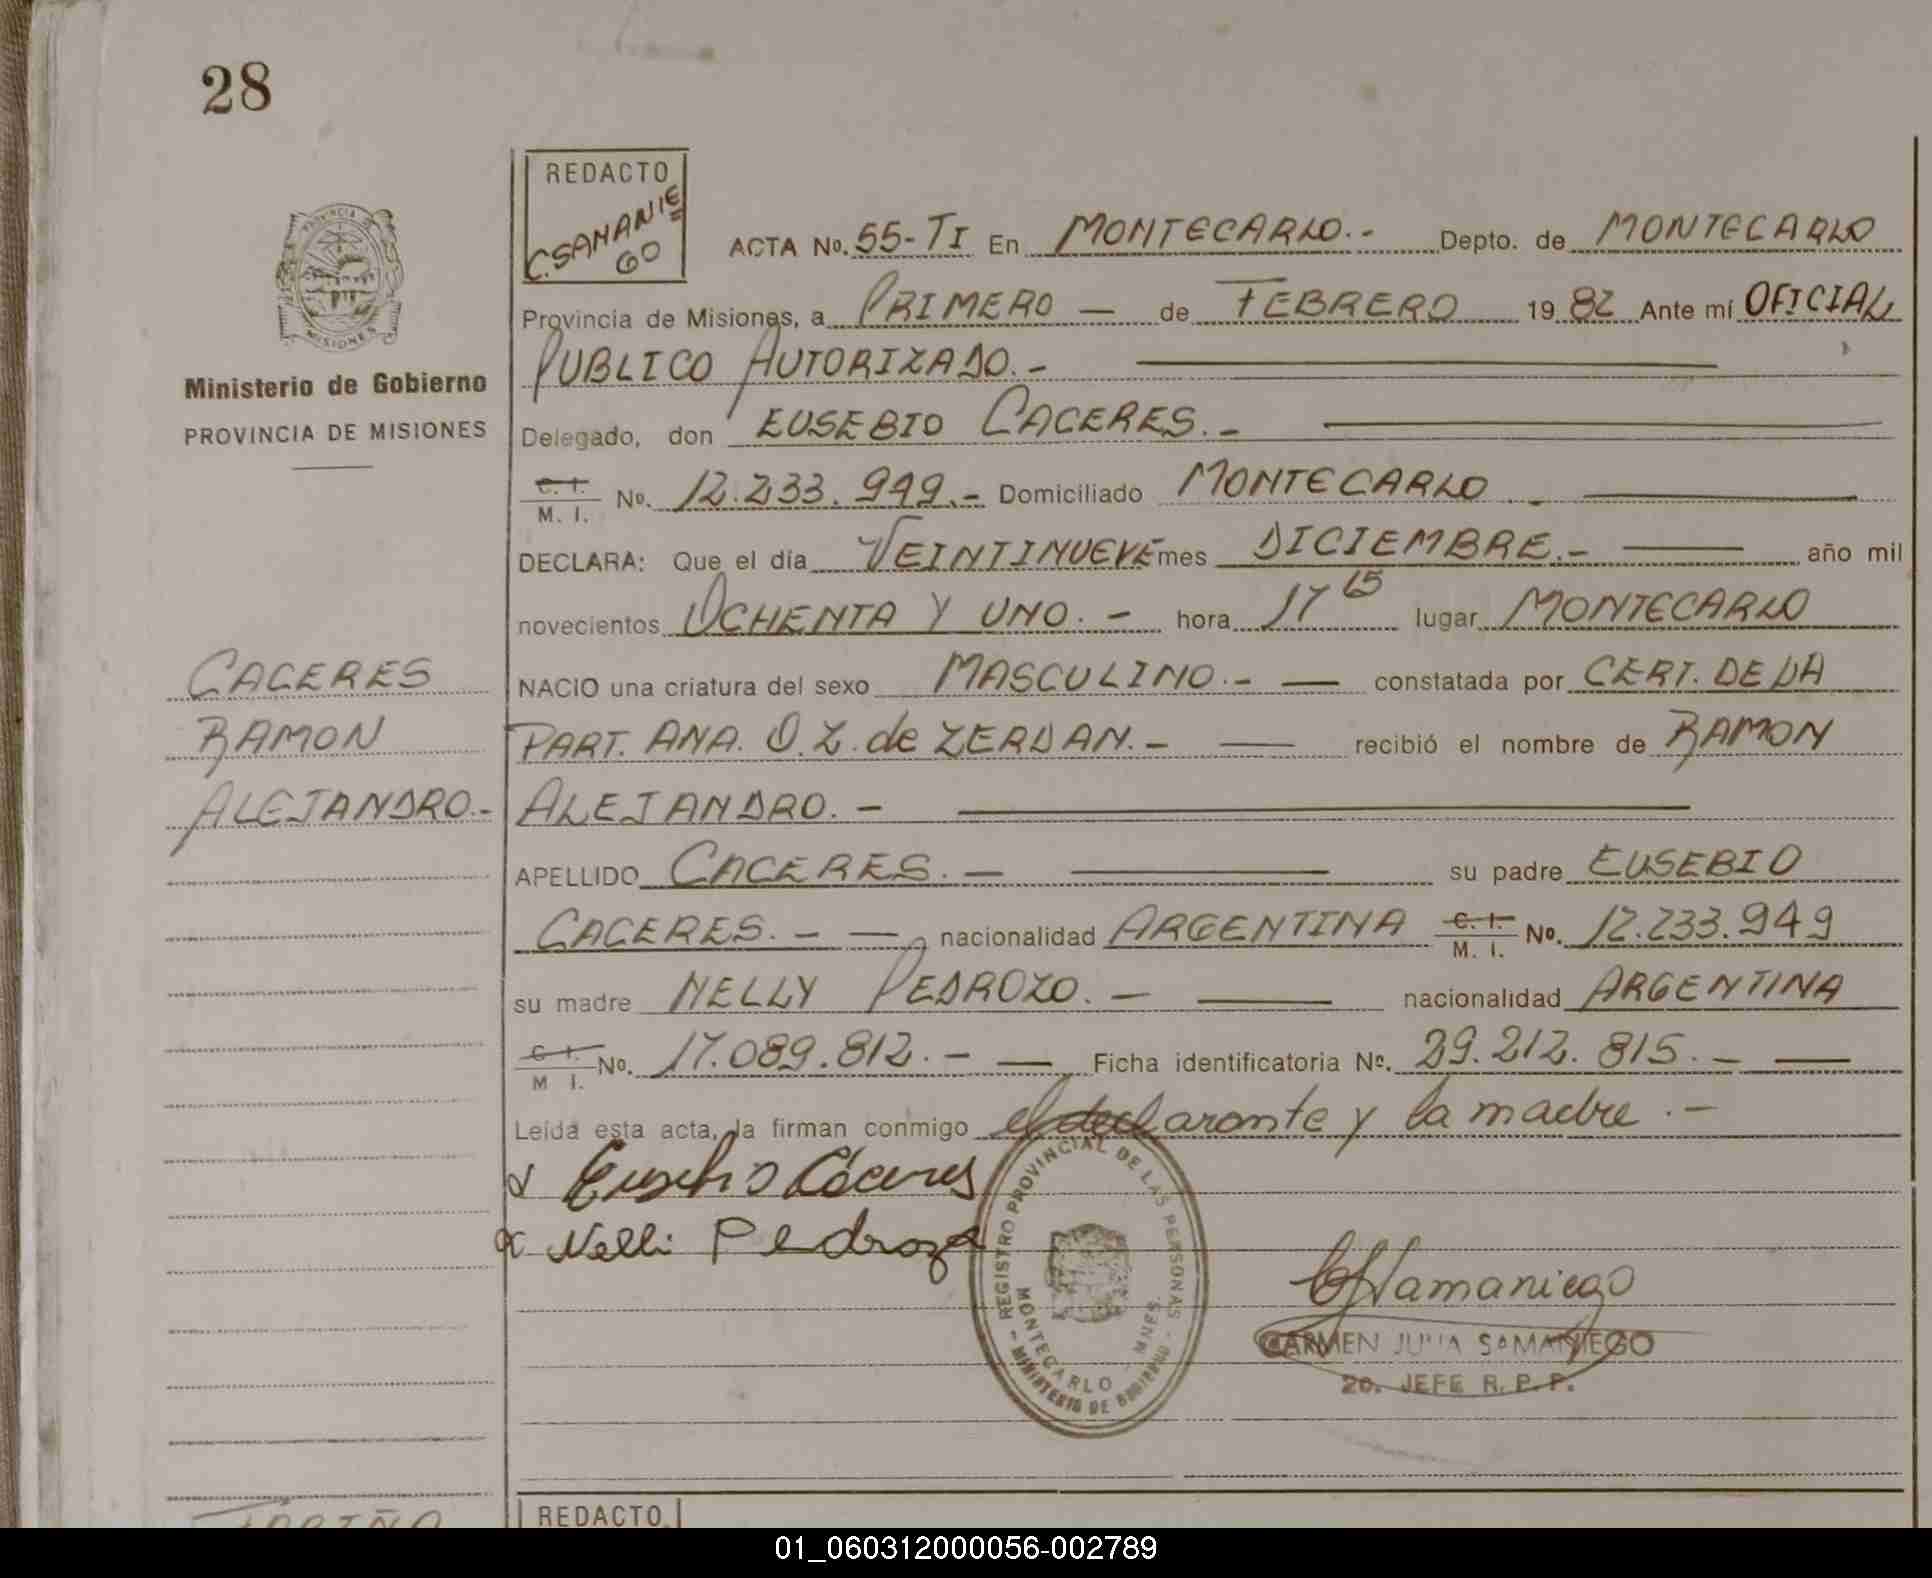 28
REDACTO
C.SAMANIE
GO
ACTA No. 55-TI En MONTECARLO.- Depto. de MONTECARLO
Provincia de Misiones, a PRIMERO — de FEBRERO 1982 Ante mí OFICIAL
PUBLICO AUTORIZADO.-
Delegado, don EUSEBIO CACERES.-
C. I.
M. I. No. 12.233.949.- Domiciliado MONTECARLO
DECLARA: Que el día VEINTINUEVE mes DICIEMBRE.- año mil
novecientos OCHENTA Y UNO.- hora 17 15 lugar MONTECARLO
NACIO una criatura del sexo MASCULINO.- — constatada por CERT. DE LA
PART. ANA. O.Z. de ZERDAN.- — recibió el nombre de RAMON
ALEJANDRO.-
APELLIDO CACERES.- — su padre EUSEBIO
CACERES.- — nacionalidad ARGENTINA C. I. M. I. No. 12.233.949
su madre NELLY PEDROZO.- — nacionalidad ARGENTINA
C. I. M I. No. 17.089.812.- — Ficha identificatoria No. 29.212.815.- —
Leída esta acta, la firman conmigo el declarante y la madre.-
Eusebio Cáceres
Nelli Pedrozo
REGISTRO PROVINCIAL DE LAS PERSONAS
MONTECARLO - MNES.
MINISTERIO DE GOBIERNO
CJSamaniego
CARMEN JULIA SAMANIEGO
2o. JEFE R. P. P.
PROVINCIA DE
MISIONES
Ministerio de Gobierno
PROVINCIA DE MISIONES
CACERES
RAMON
ALEJANDRO.-
REDACTO
01_060312000056-002789